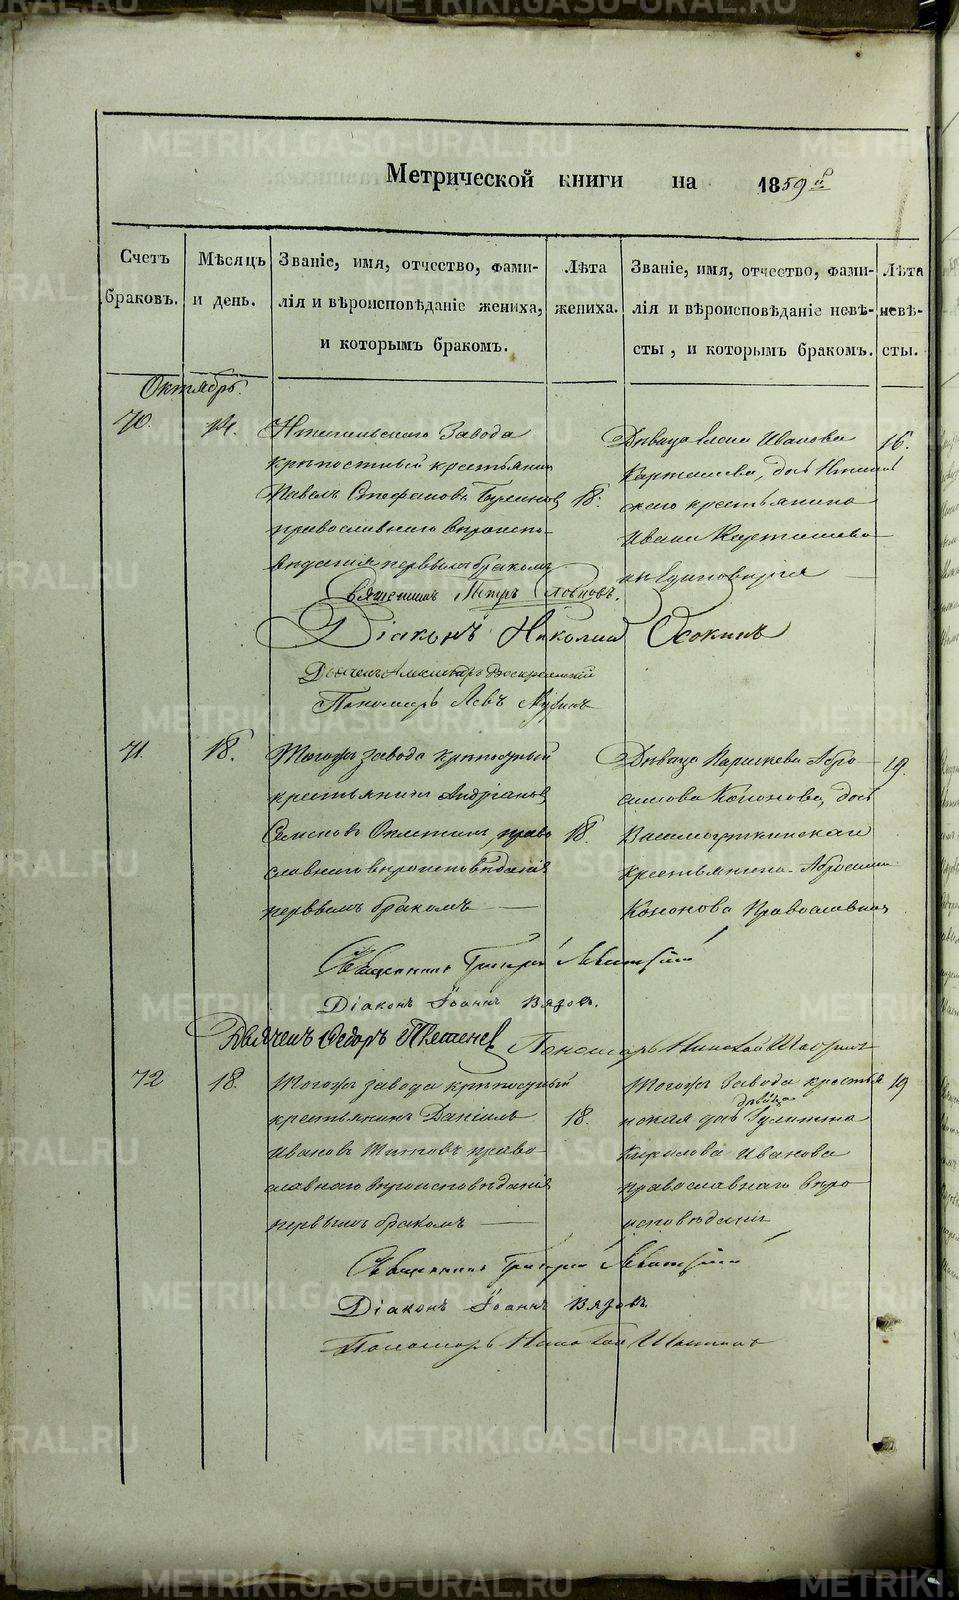 METRIKI.GASO-URAL.RU
Метрической книги на 1859й
Счетъ браковъ.
Мѣсяцъ и день.
Званіе, имя, отчество, фами-
лія и вѣроисповѣданіе жениха,
и которымъ бракомъ.
Лѣта жениха.
Званіе, имя, отчество, фами-
лія и вѣроисповѣданіе невѣ-
сты, и которымъ бракомъ.
Лѣта невѣ-
сты.
Октябрь.
70.
14.
завода
крѣпостный крестьянинъ
Павелъ Стефановъ
православнаго вѣроиспо-
вѣданія первымъ бракомъ
18.
Дѣвица Иванова
дочь
скаго крестьянина
Ивана
Единовѣрія
16.
Священникъ Петръ
Діаконъ Николай Осокинъ
Дьячекъ Александръ Воскресенскій
Пономарь Левъ
71.
18.
Тогожъ завода крѣпостный
крестьянинъ Андріанъ
право
славнаго вѣроисповѣданія
первымъ бракомъ
18.
Дѣвица Параскева Абро-
симова Кононова, дочь
крестьянина Абросима
Кононова Православная
19.
Священникъ Григорій Левитскій
Діаконъ Іоаннъ Вязовъ.
Дьячекъ Федоръ
Пономарь Николай
72
18.
Тогожъ завода крѣпостный
крестьянинъ Даніилъ
Ивановъ Титовъ право-
славнаго вѣроисповѣданія
первымъ бракомъ
18.
Тогожъ завода крестья
нская дѣвица
Кирилова Иванова
православнаго вѣро
исповѣданія
19
Священникъ Григорій Левитскій
Діаконъ Іоаннъ Вязовъ.
Пономарь Николай